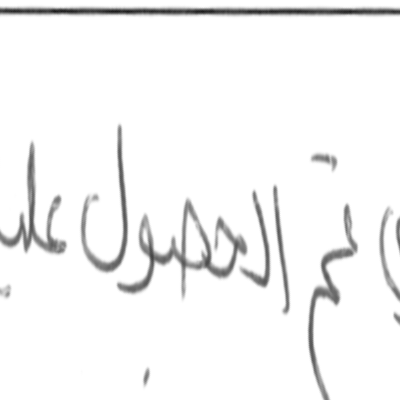 تم الحصول علي